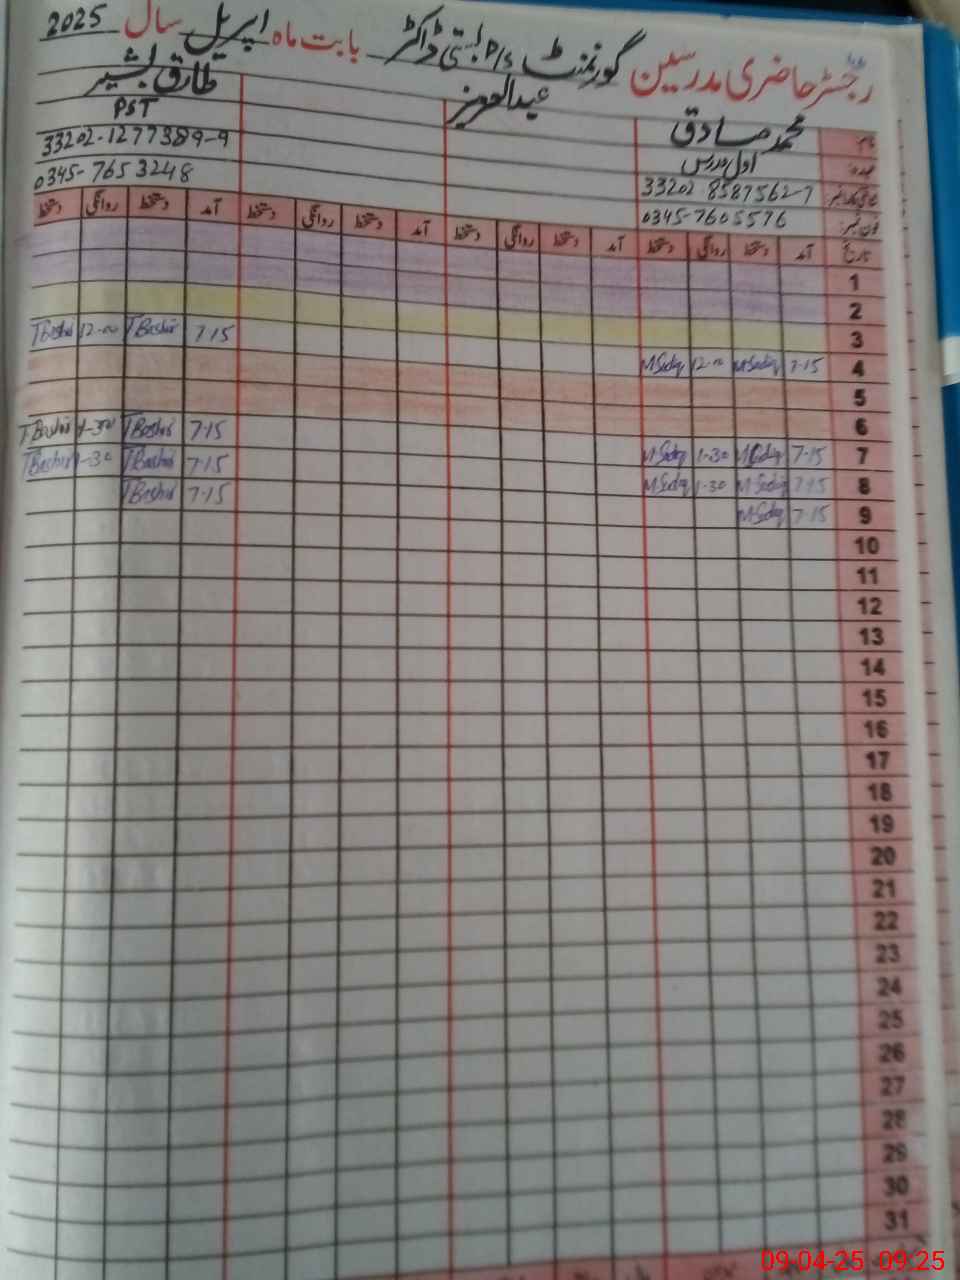 رجسٹر حاضری مدرسین گورنمنٹ P/S بستی ڈاکٹر عبدالعزیز بابت ماہ اپریل سال 2025
نام محمد صادق طارق بشیر
عہدہ اول مدرس PST
شناختی کارڈ نمبر 33202-8587562-7 33202-1277389-9
فون نمبر 0345-7605576 0345-7653248
تاریخ آمد دستخط روانگی دستخط آمد دستخط روانگی دستخط آمد دستخط روانگی دستخط آمد دستخط روانگی دستخط
1
2
3
4 7-15 M Sadiq 12-00 M Sadiq 7-15 T Bashir 12-00 T Bashir
5
6
7 7-15 M Sadiq 1-30 M Sadiq 7-15 T Bashir 1-30 T Bashir
8 7-15 M Sadiq 1-30 M Sadiq 7-15 T Bashir 1-30 T Bashir
9 7-15 M Sadiq 7-15 T Bashir
10
11
12
13
14
15
16
17
18
19
20
21
22
23
24
25
26
27
28
29
30
31
09-04-25 09:25